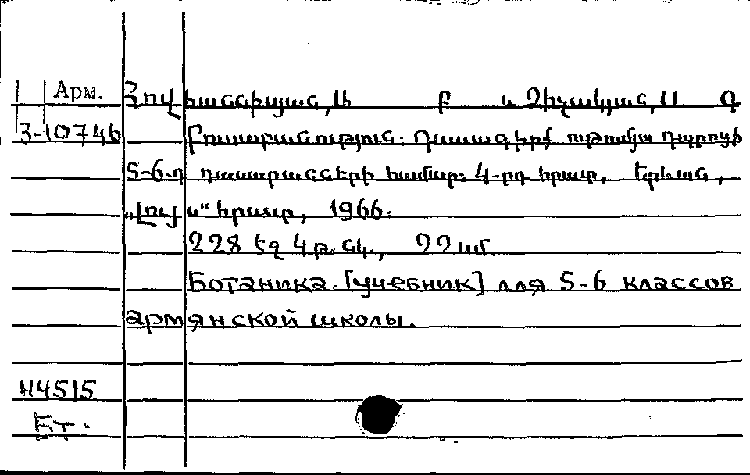 Арм. Հովհաննիսյան, Ս Բ և Չիլակյան, Ս Գ
3-10746 Բուսաբանություն: Դասագիրք ութամյա դպրոցի
5-6-րդ դասարանների համար: 4-րդ հրատ. Երևան,
„Լույս“ հրատ, 1966.
228 էջ 4 թ. նկ., 22 սմ.
Ботаника. [Учебник] для 5-6 классов
армянской школы.
И4515
Ет.